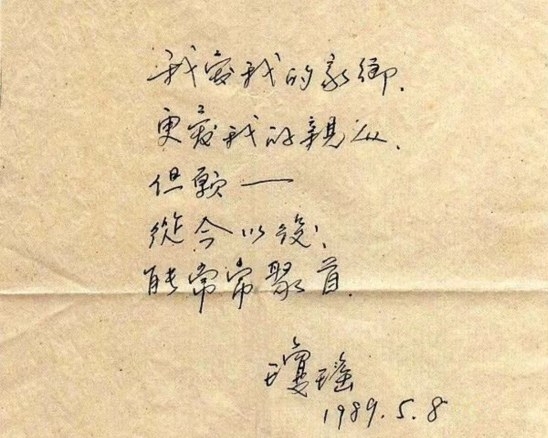 我爱我的家鄉.
更爱我的親人.
但願——
從今以後,
能常常聚首.
瓊瑤
1989.5.8